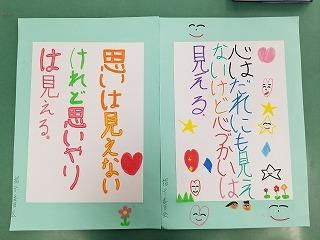 心はだれにも見え
ないけど心づかいは
見える。
思いは見えない
けれど思いやり
は見える。